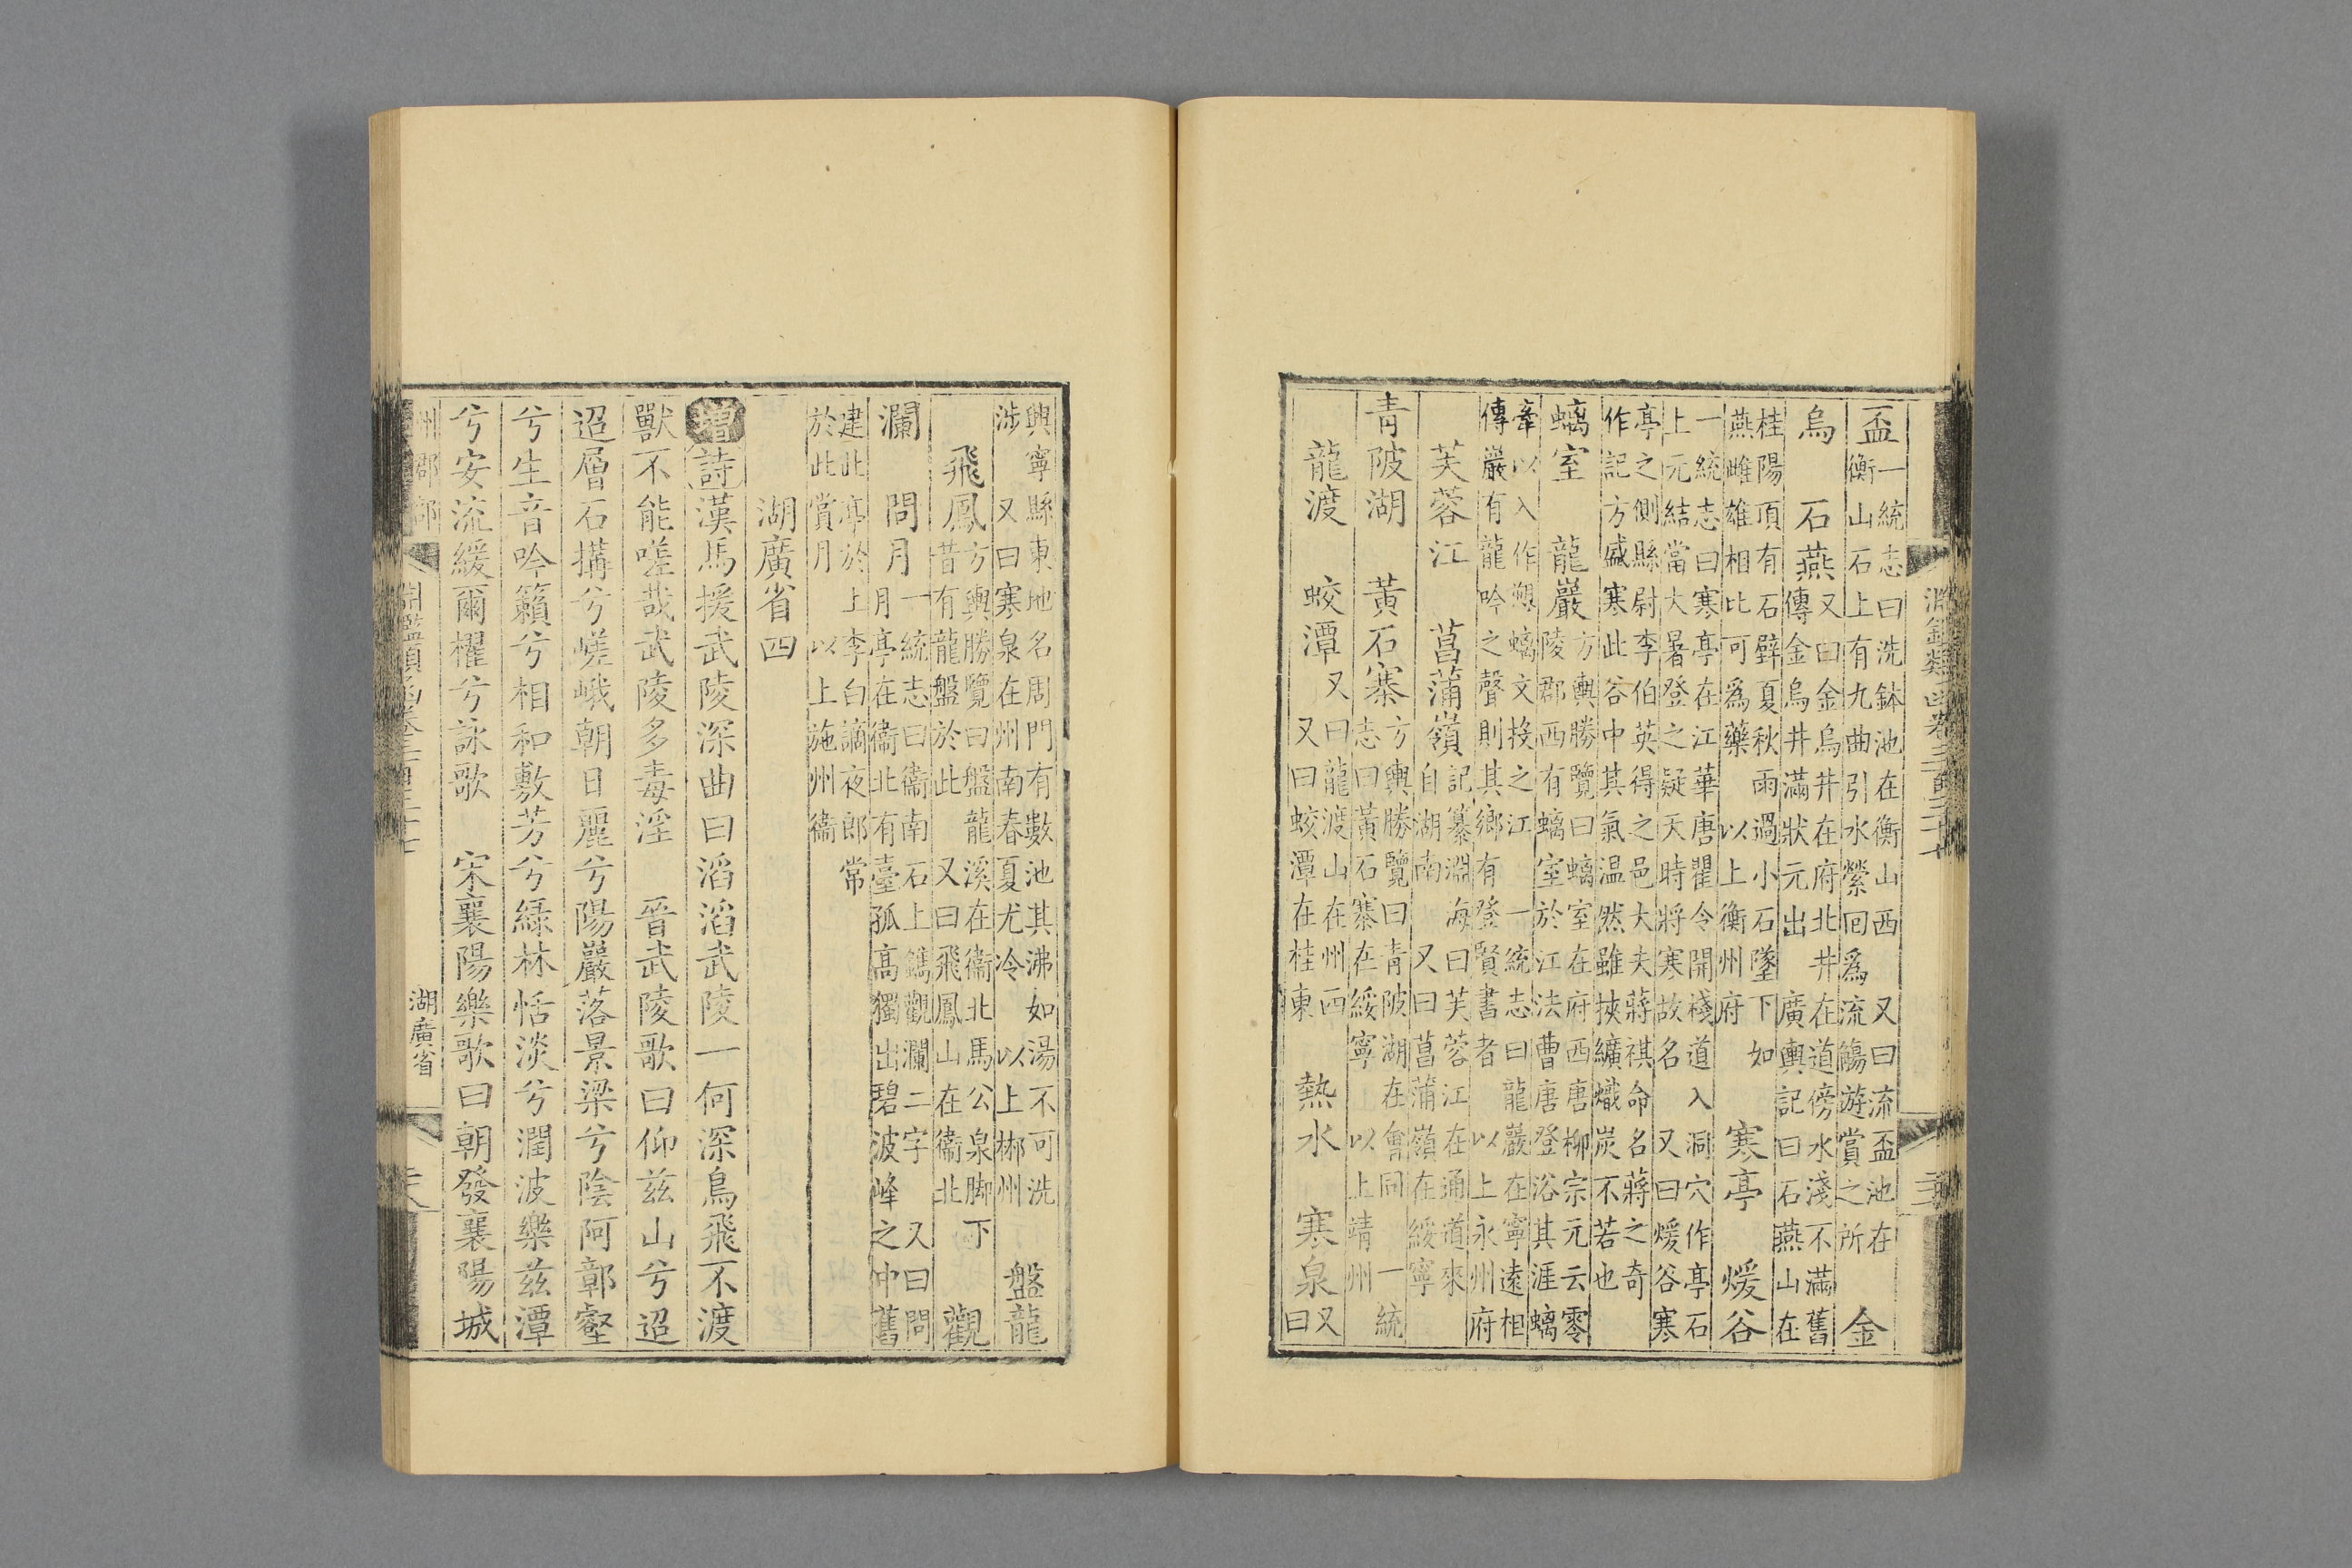 盃一統志曰洗鉢池在衡山西　又曰流盃池在衡山石上有九曲引水縈回爲流觴遊賞之所　金
烏　石燕又曰金烏井在府北井在道傍水淺不滿舊傳金烏井滿狀元出　廣輿記曰石燕山在
桂陽頂有石壁夏秋雨過小石墜下如燕雌雄相比可爲藥　以上衡州府　寒亭　煖谷
一統志曰寒亭在江華唐瞿令開棧道入洞穴作亭石上元結當大暑登之疑天時將寒故名　又曰煖谷寒
亭之側縣尉李伯英得之邑大夫蔣祺命名蔣之奇作記方盛寒此谷中其氣温然雖挾纊熾炭不若也
螭室　龍巖方輿勝覽曰螭室在府西唐柳宗元云零陵郡西有螭室於江法曹唐登浴其涯螭
牽以入作愬螭文投之江　一統志曰龍巖在寧遠相傳巖有龍吟之聲則其鄉有登賢書者　以上永州府
芙蓉江　菖蒲嶺記纂淵海曰芙蓉江在通道來自湖南　又曰菖蒲嶺在綏寧
青陂湖　黃石寨方輿勝覽曰青陂湖在會同　一統志曰黃石寨在綏寧　以上靖州
龍渡　蛟潭又曰龍渡山在州西　又曰蛟潭在桂東　熱水　寒泉又曰
興寧縣東地名周門有數池其沸如湯不可洗涉　又曰寒泉在州南春夏尤冷　以上郴州　盤龍
飛鳳方輿勝覽曰盤龍溪在衞北馬公泉脚下昔有龍盤於此　又曰飛鳳山在衞北　觀
瀾　問月一統志曰衞南石上鐫觀瀾二字　又曰問月亭在衞北有臺孤高獨出碧波峰之中舊
建此亭於上李白謫夜郎常於此賞月　以上施州衞
湖廣省四
增詩漢馬援武陵深曲曰滔滔武陵一何深鳥飛不渡
獸不能嗟哉武陵多毒淫　晉武陵歌曰仰茲山兮迢
迢層石搆兮嵯峨朝日麗兮陽巖落景梁兮陰阿鄣壑
兮生音吟籟兮相和敷芳兮綠林恬淡兮潤波樂茲潭
兮安流緩爾櫂兮詠歌　宋襄陽樂歌曰朝發襄陽城
州郡部
湖廣省